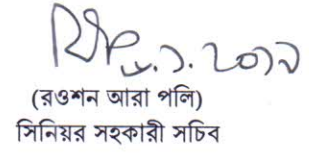 ৮.১.২০১৯
(রওশন আরা পলি)
সিনিয়র সহকারী সচিব